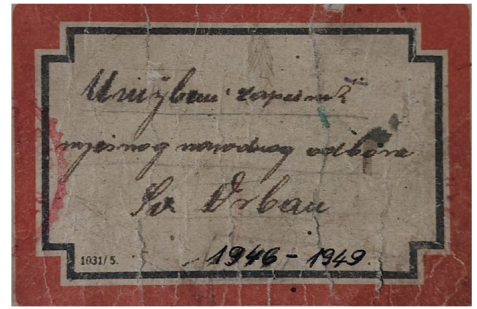 Uružbeni zapisnik
mjesnog narodnog odbora
Sv Urban
1031/5. 1946 - 1949